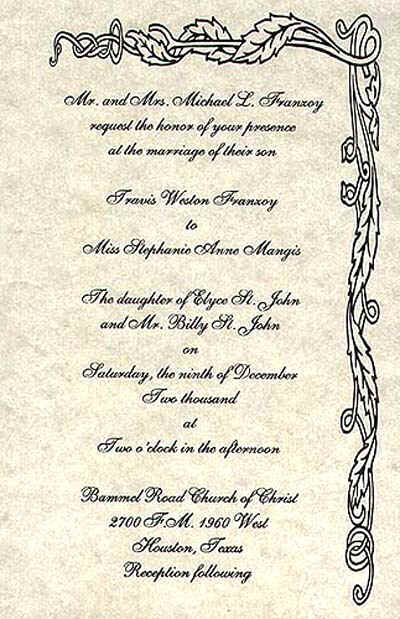 Mr. and Mrs. Michael L. Franzoy
request the honor of your presence
at the marriage of their son
Travis Weston Franzoy
to
Miss Stephanie Anne Mangis
The daughter of Elyce St. John
and Mr. Billy St. John
on
Saturday, the ninth of December
Two thousand
at
Two o'clock in the afternoon
Bammel Road Church of Christ
2700 F.M. 1960 West
Houston, Texas
Reception following